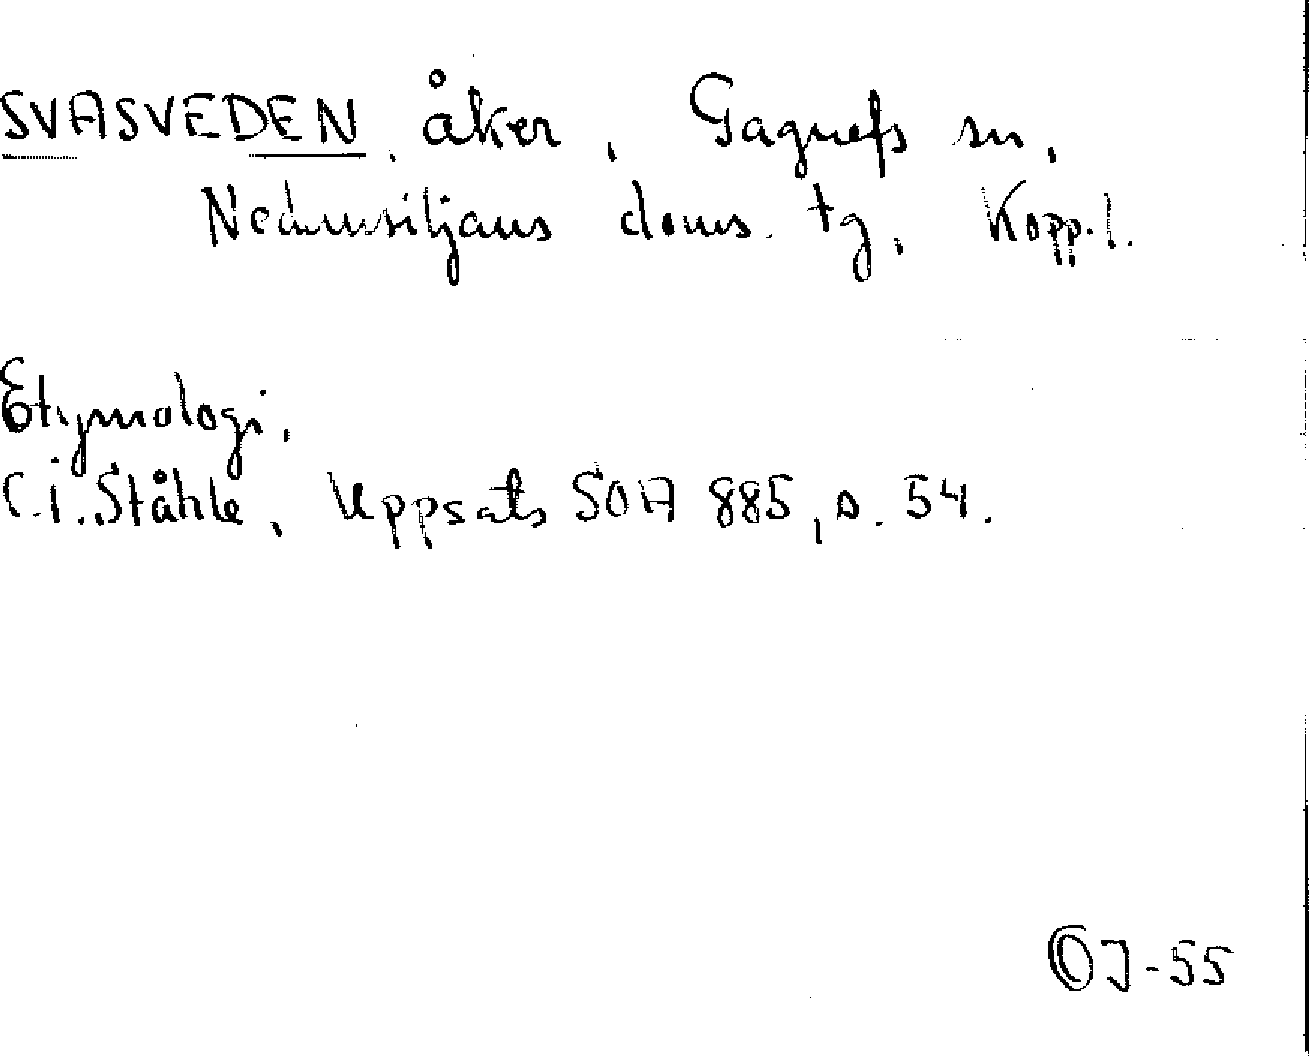 SVASVEDEN, åker, Gagnefs sn,
Nedansiljans doms. tg, Kopp.l.
Etymologi.
C.I. Ståhle, Uppsats SOA 885, s. 54.
OJ-55